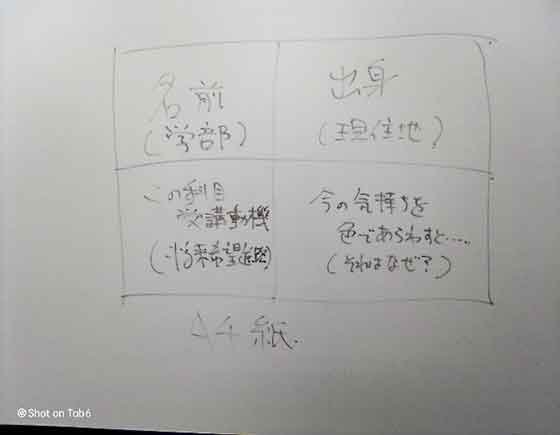 名前
(学部)
出身
(現住地)
この科目
受講動機
(将来希望進路)
今の気持ちを
色であらわすと……
(それはなぜ?)
A4紙.
Shot on Tob6